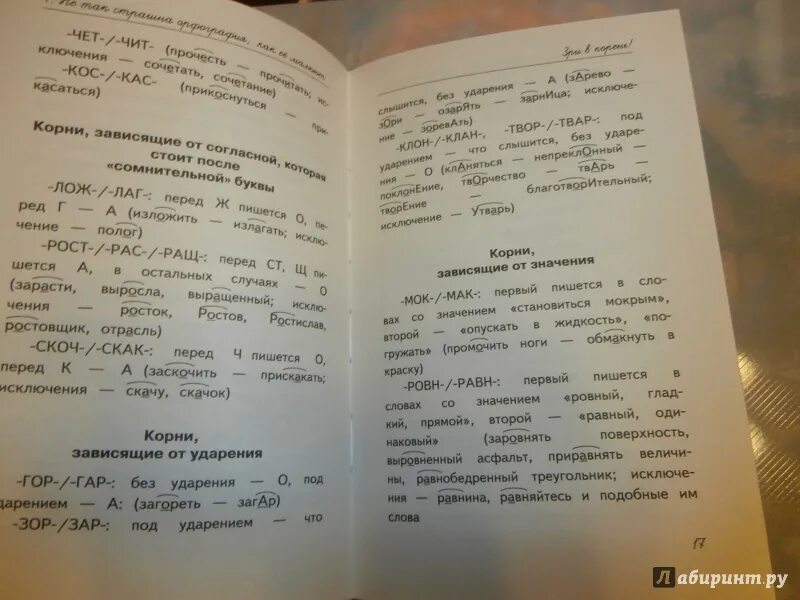 Не так страшна орфография, как её малюют
-ЧЕТ-/-ЧИТ- (прочесть — прочитать; ис-
ключения — сочетать, сочетание)
-КОС-/-КАС- (прикоснуться — при-
касаться)
Корни, зависящие от согласной, которая
стоит после
«сомнительной» буквы
-ЛОЖ-/-ЛАГ-: перед Ж пишется О, пе-
ред Г — А (изложить — излагать; исклю-
чение — полог)
-РОСТ-/-РАС-/-РАЩ-: перед СТ, Щ пи-
шется А, в остальных случаях — О
(зарасти, выросла, выращенный; исклю-
чения — росток, Ростов, Ростислав,
ростовщик, отрасль)
-СКОЧ-/-СКАК-: перед Ч пишется О,
перед К — А (заскочить — прискакать;
исключения — скачу, скачок)
Корни,
зависящие от ударения
-ГОР-/-ГАР-: без ударения — О, под
ударением — А: (загореть — загАр)
-ЗОР-/ЗАР-: под ударением — что
Зри в корень!
слышится, без ударения — А (зАрево —
зОри — озарЯть — зарнИца; исключе-
ние — зоревАть)
-КЛОН-/-КЛАН-, -ТВОР-/-ТВАР-: под
ударением — что слышится, без ударе-
ния — О (клАняться — непреклОнный —
поклонЕние, твОрчество — твАрь —
творЕние — благотворИтельный;
исключение — Утварь)
Корни,
зависящие от значения
-МОК-/-МАК-: первый пишется в сло-
вах со значением «становиться мокрым»,
второй — «опускать в жидкость», «по-
гружать» (промочить ноги — обмакнуть в
краску)
-РОВН-/-РАВН-: первый пишется в
словах со значением «ровный, глад-
кий, прямой», второй — «равный, оди-
наковый» (заровнять поверхность,
выровненный асфальт, приравнять величи-
ны, равнобедренный треугольник; исключе-
ния — равнина, равняйтесь и подобные им
слова
17
Лабиринт.ру